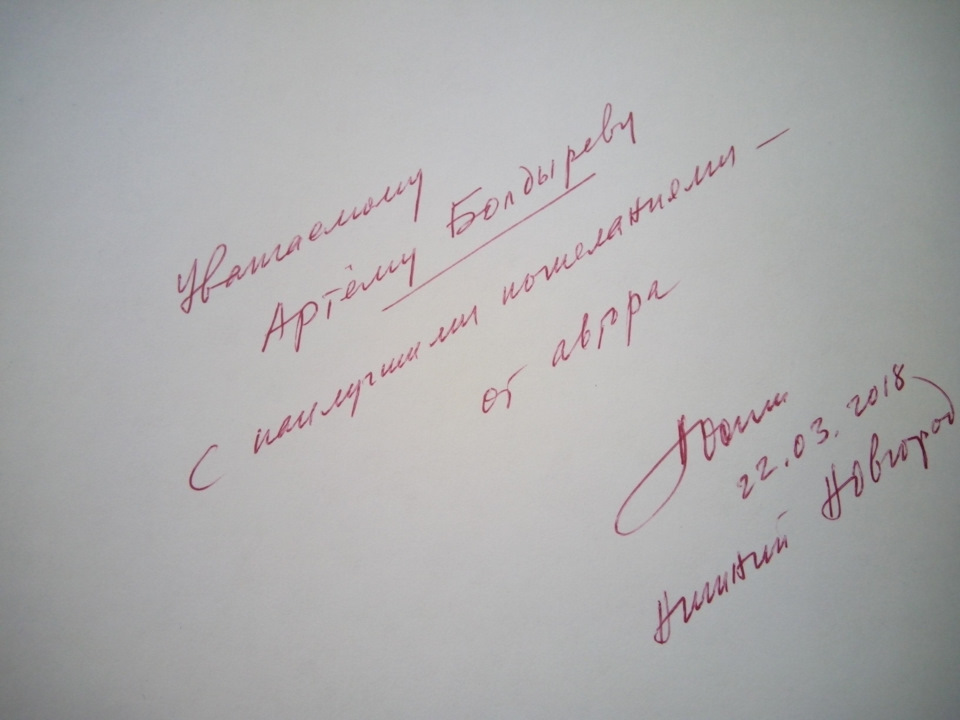 Уважаемому
Артёму Болдыреву
С наилучшими пожеланиями –
от автора
22.03.2018
Нижний Новгород